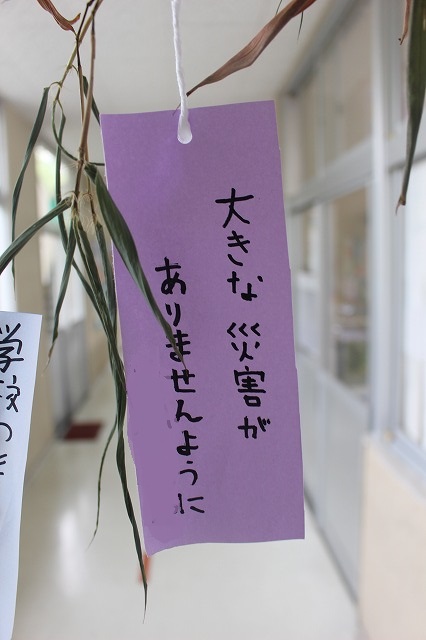 大きな災害が
ありませんように
学校